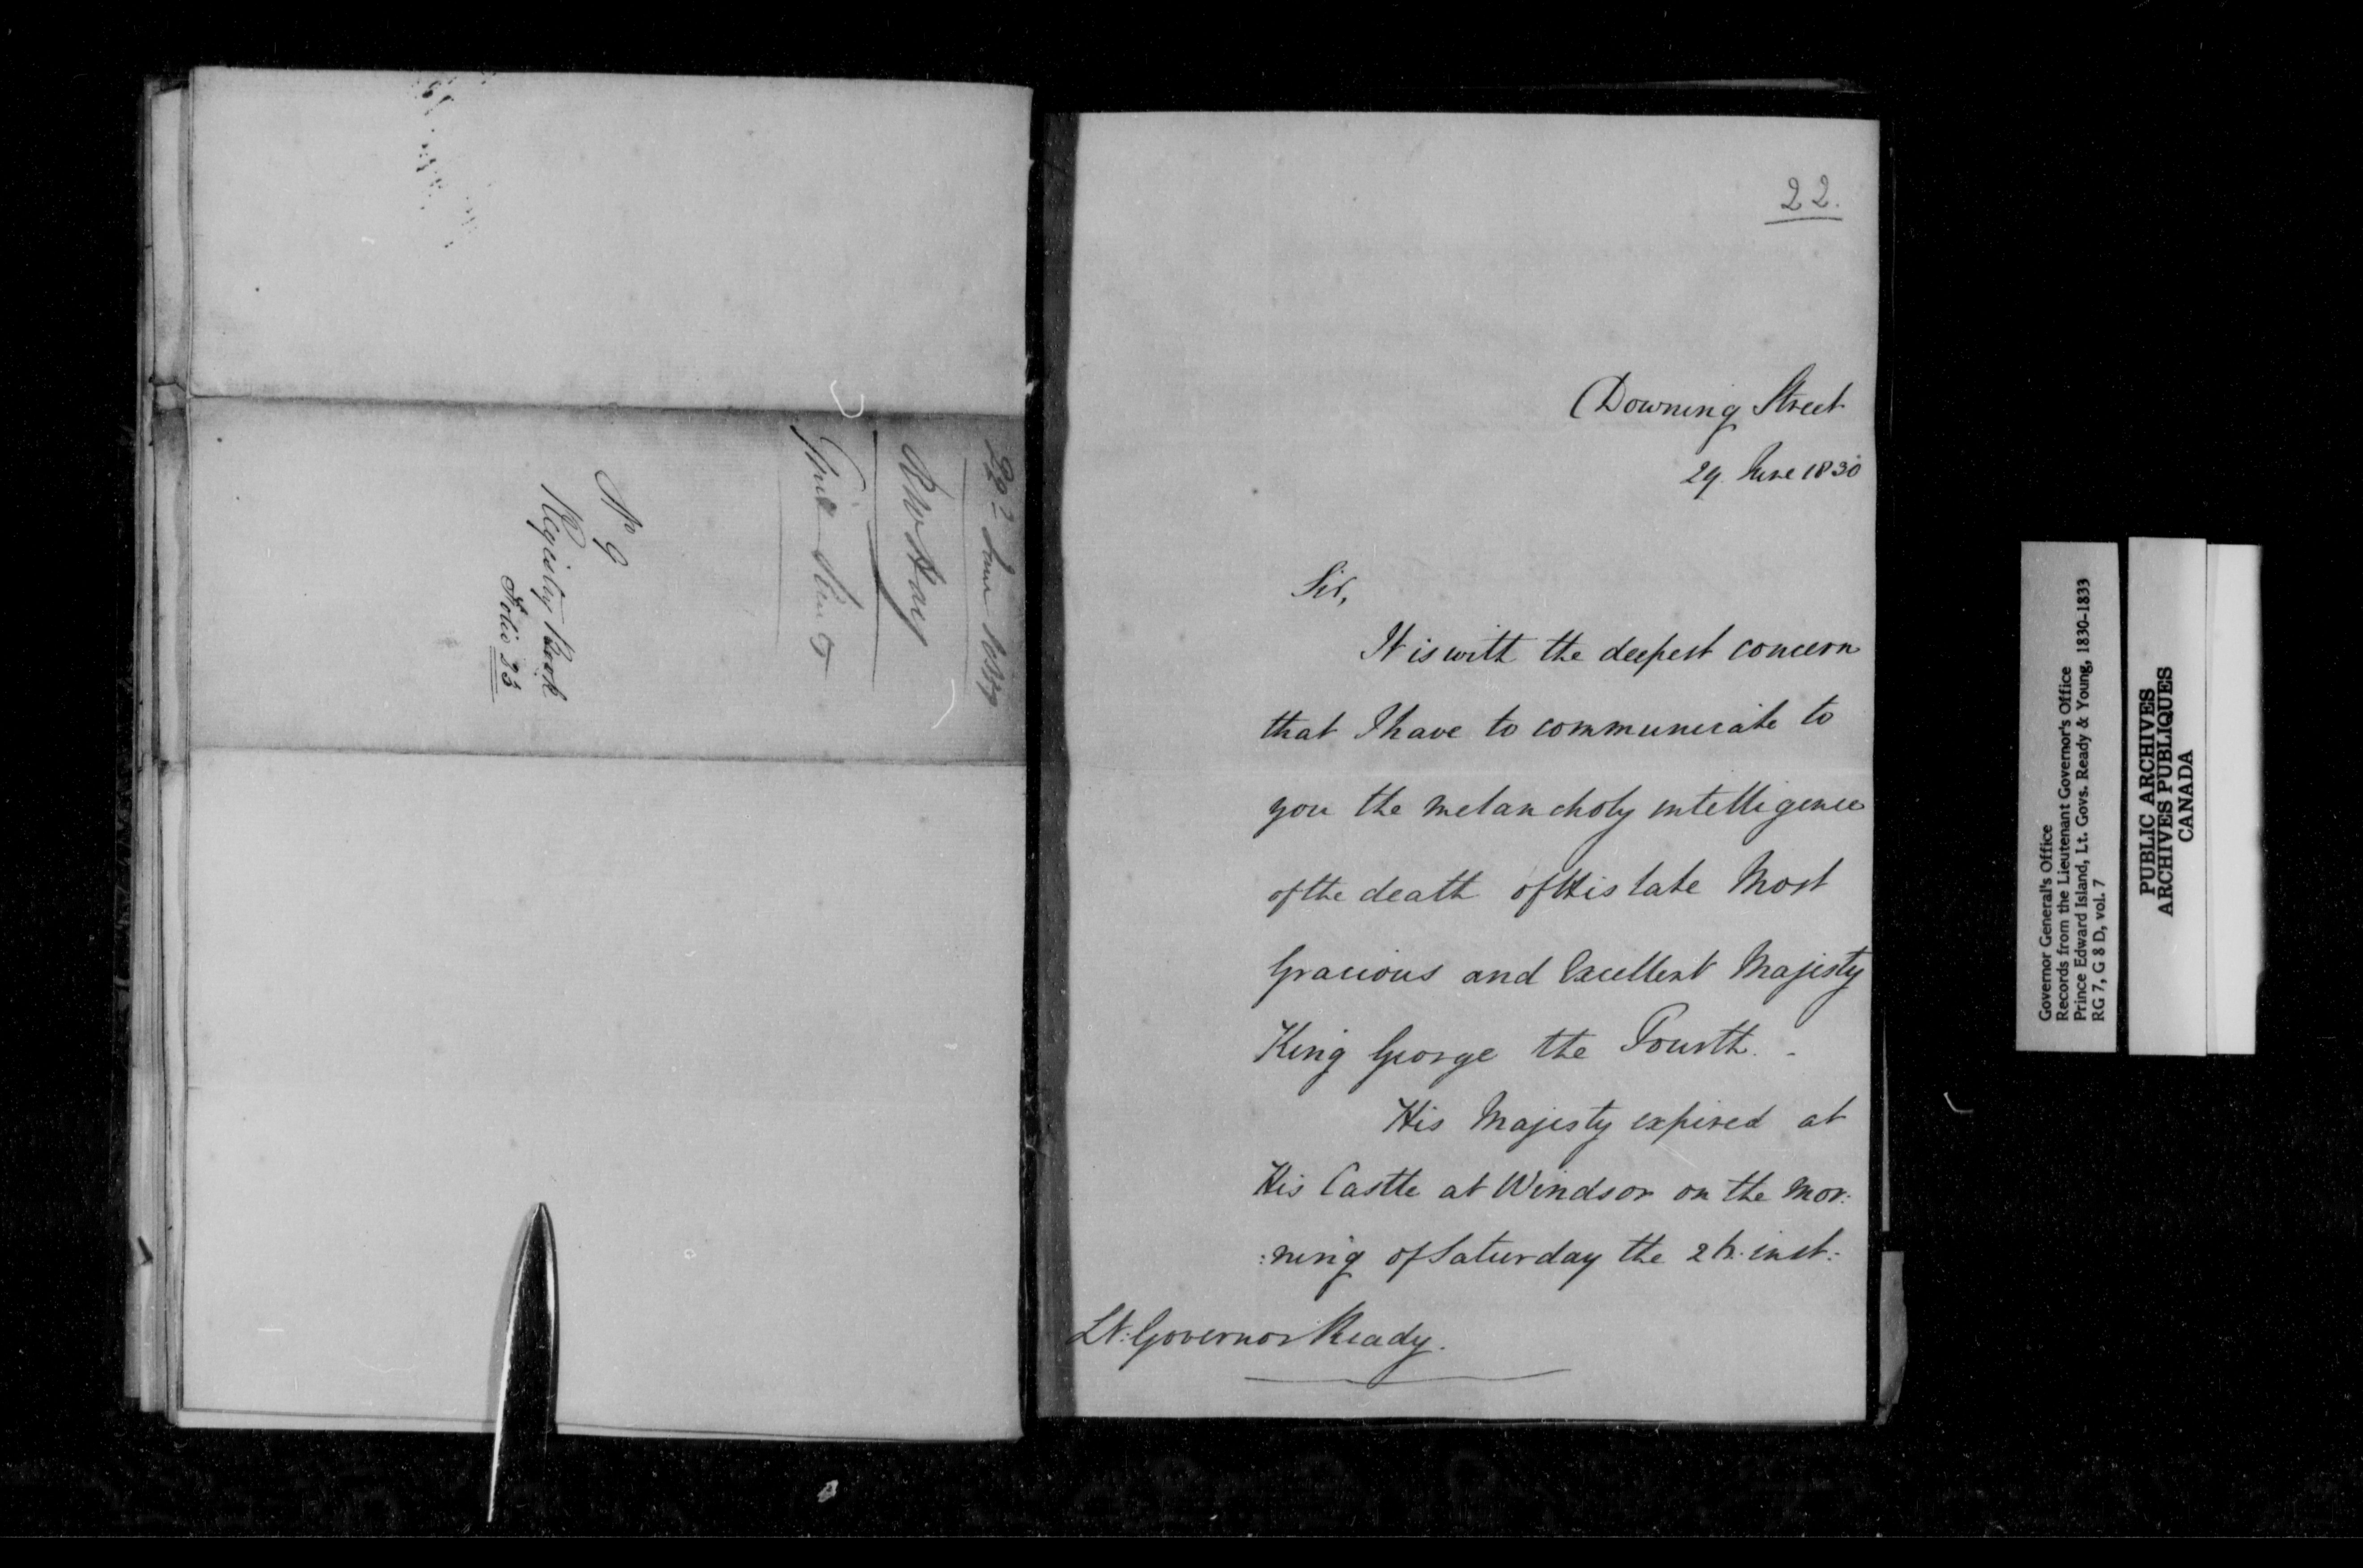 R W Hay
No 9
Registry Book
Folio 35
22.
Downing Street
29. June 1830
Sir,
It is with the deepest concern
that I have to communicate to
you the melancholy intelligence
of the death of His late Most
Gracious and Excellent Majesty
King George the Fourth. -
His Majesty expired at
His Castle at Windsor on the mor:
:ning of Saturday the 26. inst:
Lt: Governor Ready.
Governor General's Office
Records from the Lieutenant Governor's Office
Prince Edward Island, Lt. Govs. Ready & Young, 1830-1833
RG 7, G 8 D, vol. 7
PUBLIC ARCHIVES
ARCHIVES PUBLIQUES
CANADA